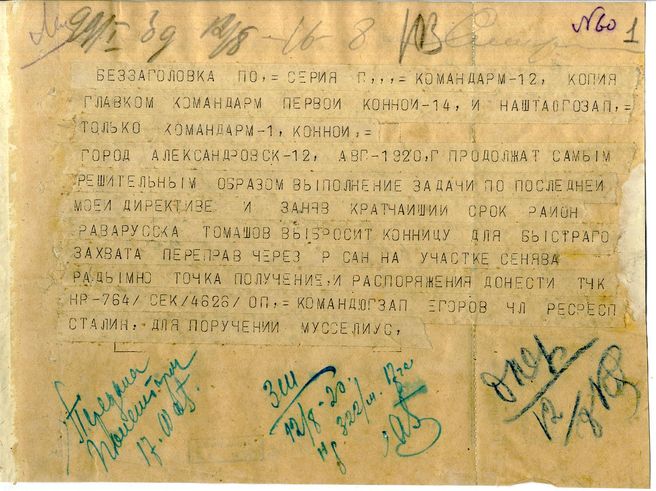 №60 1
БЕЗЗАГОЛОВКА ПО,= СЕРИЯ Г,,,= КОМАНДАРМ-12, КОПИЯ
ГЛАВКОМ КОМАНДАРМ ПЕРВОИ КОННОИ-14, И НАШТАОГОЗАП,=
ТОЛЬКО КОМАНДАРМ-1, КОННОИ,=
ГОРОД АЛЕКСАНДРОВСК-12, АВГ-1920,Г ПРОДОЛЖАТ САМЫМ
РЕШИТЕЛЬНЫМ ОБРАЗОМ ВЫПОЛНЕНИЕ ЗАДАЧИ ПО ПОСЛЕДНЕИ
МОЕИ ДИРЕКТИВЕ И ЗАНЯВ КРАТЧАИШИИ СРОК РАИОН
РАВАРУССКА ТОМАШОВ ВЫБРОСИТ КОННИЦУ ДЛЯ БЫСТРАГО
ЗАХВАТА ПЕРЕПРАВ ЧЕРЕЗ Р САН НА УЧАСТКЕ СЕНЯВА
РАДЫМНО ТОЧКА ПОЛУЧЕНИЕ, И РАСПОРЯЖЕНИЯ ДОНЕСТИ ТЧК
НР-764/ СЕК/4626/ ОП,= КОМАНДЮГЗАП ЕГОРОВ ЧЛ РЕСРЕСП
СТАЛИН, ДЛЯ ПОРУЧЕНИИ МУССЕЛИУС,
12/8-20.